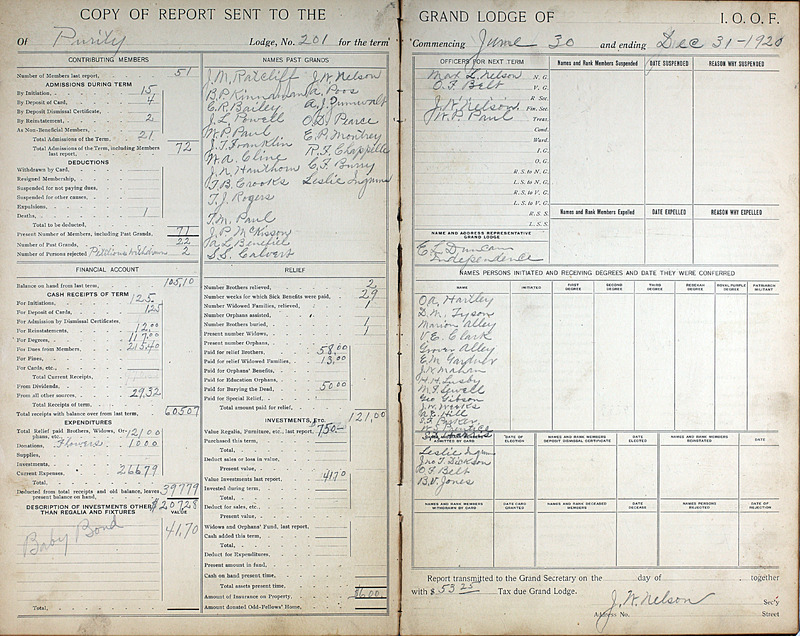 COPY OF REPORT SENT TO THE
Of Purity Lodge, No. 201 for the term
CONTRIBUTING MEMBERS
Number of Members last report, 51
ADMISSIONS DURING TERM
By Initiation, 15
By Deposit of Card, 4
By Deposit Dismissal Certificate,
By Reinstatement, 2
As Non-Beneficial Members,
Total Admissions of the Term, 21
Total Admissions of the Term, including Members last report, 72
DEDUCTIONS
Withdrawn by Card,
Resigned Membership,
Suspended for not paying dues,
Suspended for other causes,
Expulsions,
Deaths, 1
Total to be deducted,
Present Number of Members, including Past Grands, 71
Number of Past Grands, 22
Number of Persons rejected 2
NAMES PAST GRANDS
J. M. Ratcliff J. W. Nelson
B. P. Kinnaman Poos
E. R. Bailey A. J. Dunnivolt
J. L. Powell O. D. Pearce
W. P. Paul E. P. Montrey
J. T. Franklin R. F. Chappelle
W. A. Cline C. F. Bonny
J. N. Hawthorn Leslie Ingum
T. B. Crooks
T. J. Rogers
T. M. Paul
J. P. McKisson
A. L. Benefiel
S. S. Calvert
FINANCIAL ACCOUNT
Balance on hand from last term, 105.10
CASH RECEIPTS OF TERM
For Initiations, 125.
For Deposit of Cards,
For Admission by Dismissal Certificates,
For Reinstatements, 12.00
For Degrees, 117.00
For Dues from Members, 215.40
For Fines,
For Cards, etc.,
Total Current Receipts,
From Dividends,
From all other sources, 29.32
Total Receipts of term,
Total receipts with balance over from last term, 605.07
EXPENDITURES
Total Relief paid Brothers, Widows, Orphans, etc., 121.00
Donations, Flowers 10.00
Supplies,
Investments,
Current Expenses, 266.79
Total,
Deducted from total receipts and old balance, leaves present balance on hand, 397.79
$207.28
DESCRIPTION OF INVESTMENTS OTHER THAN REGALIA AND FIXTURES VALUE
Baby Bond 41.70
Total,
RELIEF
Number Brothers relieved, 2
Number weeks for which Sick Benefits were paid, 29
Number Widowed Families, relieved, 1
Number Orphans assisted,
Number Brothers buried, 1
Present number Widows,
Present number Orphans,
Paid for relief Brothers, 58.00
Paid for relief Widowed Families, 13.00
Paid for Orphans' Benefits,
Paid for Education Orphans,
Paid for Burying the Dead, 50.00
Paid for Special Relief,
Total amount paid for relief, 121.00
INVESTMENTS, Etc.
Value Regalia, Furniture, etc., last report, 750.–
Purchased this term,
Total,
Deduct sales or loss in value,
Present value,
Value Investments last report, 4170
Invested during term,
Total,
Deduct for sales, etc.,
Present value,
Widows and Orphans' Fund, last report,
Cash added this term,
Total,
Deduct for Expenditures,
Present amount in fund,
Cash on hand present time,
Total assets present time,
Amount of Insurance on Property,
Amount donated Odd-Fellows' Home,
GRAND LODGE OF I. O. O. F.
Commencing June 30 and ending Dec 31-1920
OFFICERS FOR NEXT TERM
Max L. Nelson N. G.
O. F. Belt V. G.
R Sec.
J. W. Nelson Fin. Sec.
W. P. Paul Treas.
Cond.
Ward.
I. G.
O. G.
R. S. to N. G.
L. S. to N. G.
R. S. to V. G.
L. S. to V. G.
R. S. S.
L. S. S.
Names and Rank Members Suspended DATE SUSPENDED REASON WHY SUSPENDED
Names and Rank Members Expelled DATE EXPELLED REASON WHY EXPELLED
NAME AND ADDRESS REPRESENTATIVE GRAND LODGE
E. L. Duncan
Independence
NAMES PERSONS INITIATED AND RECEIVING DEGREES AND DATE THEY WERE CONFERRED
NAME INITIATED FIRST DEGREE SECOND DEGREE THIRD DEGREE REBEKAH DEGREE ROYAL PURPLE DEGREE PATRIARCH MILITANT
O. A. Hartley
D. M. Tyson
Marion Alley
V. E. Clark
Grover Alley
E. M. Gardner
J. K. Mahan
H. H. Lusby
M. F. Sewell
Geo Gibson
J. W. Weeks
Hill
ADMITTED BY CARD DATE OF ELECTION NAMES AND RANK MEMBERS DEPOSIT DISMISSAL CERTIFICATE DATE ELECTED NAMES AND RANK MEMBERS REINSTATED DATE
Leslie Ingum
Jno T. Dickson
O F Belt
B. V. Jones
NAMES AND RANK MEMBERS WITHDRAWN BY CARD DATE CARD GRANTED NAMES AND RANK DECEASED MEMBERS DATE OF DECEASE NAMES PERSONS REJECTED DATE OF REJECTION
Report transmitted to the Grand Secretary on the day of , together
with $ 53 25 Tax due Grand Lodge.
J. W. Nelson Sec'y
Address No. Street